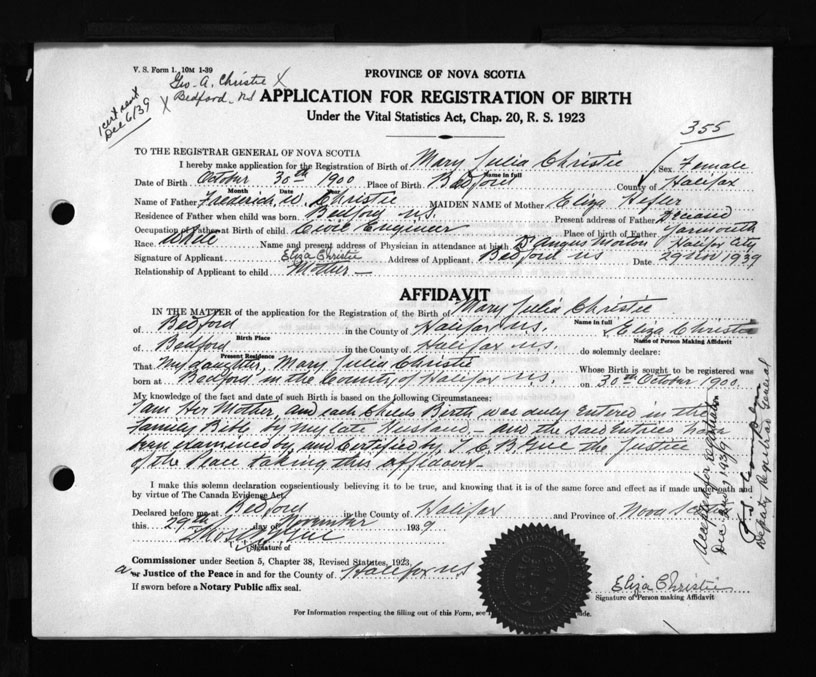 V. S. Form 1. 10M 1-39
Geo. A. Christie X
X Bedford NS
1 cert sent
Dec 6/39
PROVINCE OF NOVA SCOTIA
APPLICATION FOR REGISTRATION OF BIRTH
Under the Vital Statistics Act, Chap. 20, R. S. 1923
355
TO THE REGISTRAR GENERAL OF NOVA SCOTIA
I hereby make application for the Registration of Birth of Mary Julia Christie Sex Female
Name in full
Date of Birth October 30th 1900 Place of Birth Bedford County of Halifax
Month Date Year
Name of Father Frederick W. Christie MAIDEN NAME of Mother Eliza Hefler
Residence of Father when child was born. Bedford NS. Present address of Father Deceased
Occupation of Father at Birth of child. Civil Engineer Place of birth of Father Yarmouth
Race. White Name and present address of Physician in attendance at birth Dr Angus Morton Halifax City
Signature of Applicant Eliza Christie Address of Applicant Bedford NS Date 29 Nov 1939
Relationship of Applicant to child Mother
AFFIDAVIT
IN THE MATTER of the application for the Registration of the Birth of Mary Julia Christie
Name in full
of Bedford in the County of Halifax NS. Eliza Christie
Birth Place Name of Person Making Affidavit
of Bedford in the County of Halifax NS. do solemnly declare:
Present Residence
That My daughter, Mary Julia Christie Whose Birth is sought to be registered was
born at Bedford in the County of Halifax NS. on 30th October 1900.
My knowledge of the fact and date of such Birth is based on the following Circumstances:
I am Her Mother, and each Childs Birth was duly Entered in the
Family Bible by my late Husband - and the said Entries have
been examined by and Certified by the Justice
of the Peace taking this affidavit-
I make this solemn declaration conscientiously believing it to be true, and knowing that it is of the same force and effect as if made under oath and
by virtue of The Canada Evidence Act.
Declared before me at Bedford in the County of Halifax and Province of Nova Scotia
this 29th day of November 1939
Signature of
Commissioner under Section 5, Chapter 38, Revised Statutes, 1923
or Justice of the Peace in and for the County of Halifax NS
If sworn before a Notary Public affix seal.
Eliza Christie
Signature of Person making Affidavit
For Information respecting the filling out of this Form, see
Accepted for registration
Dec 1939
Deputy Registrar General